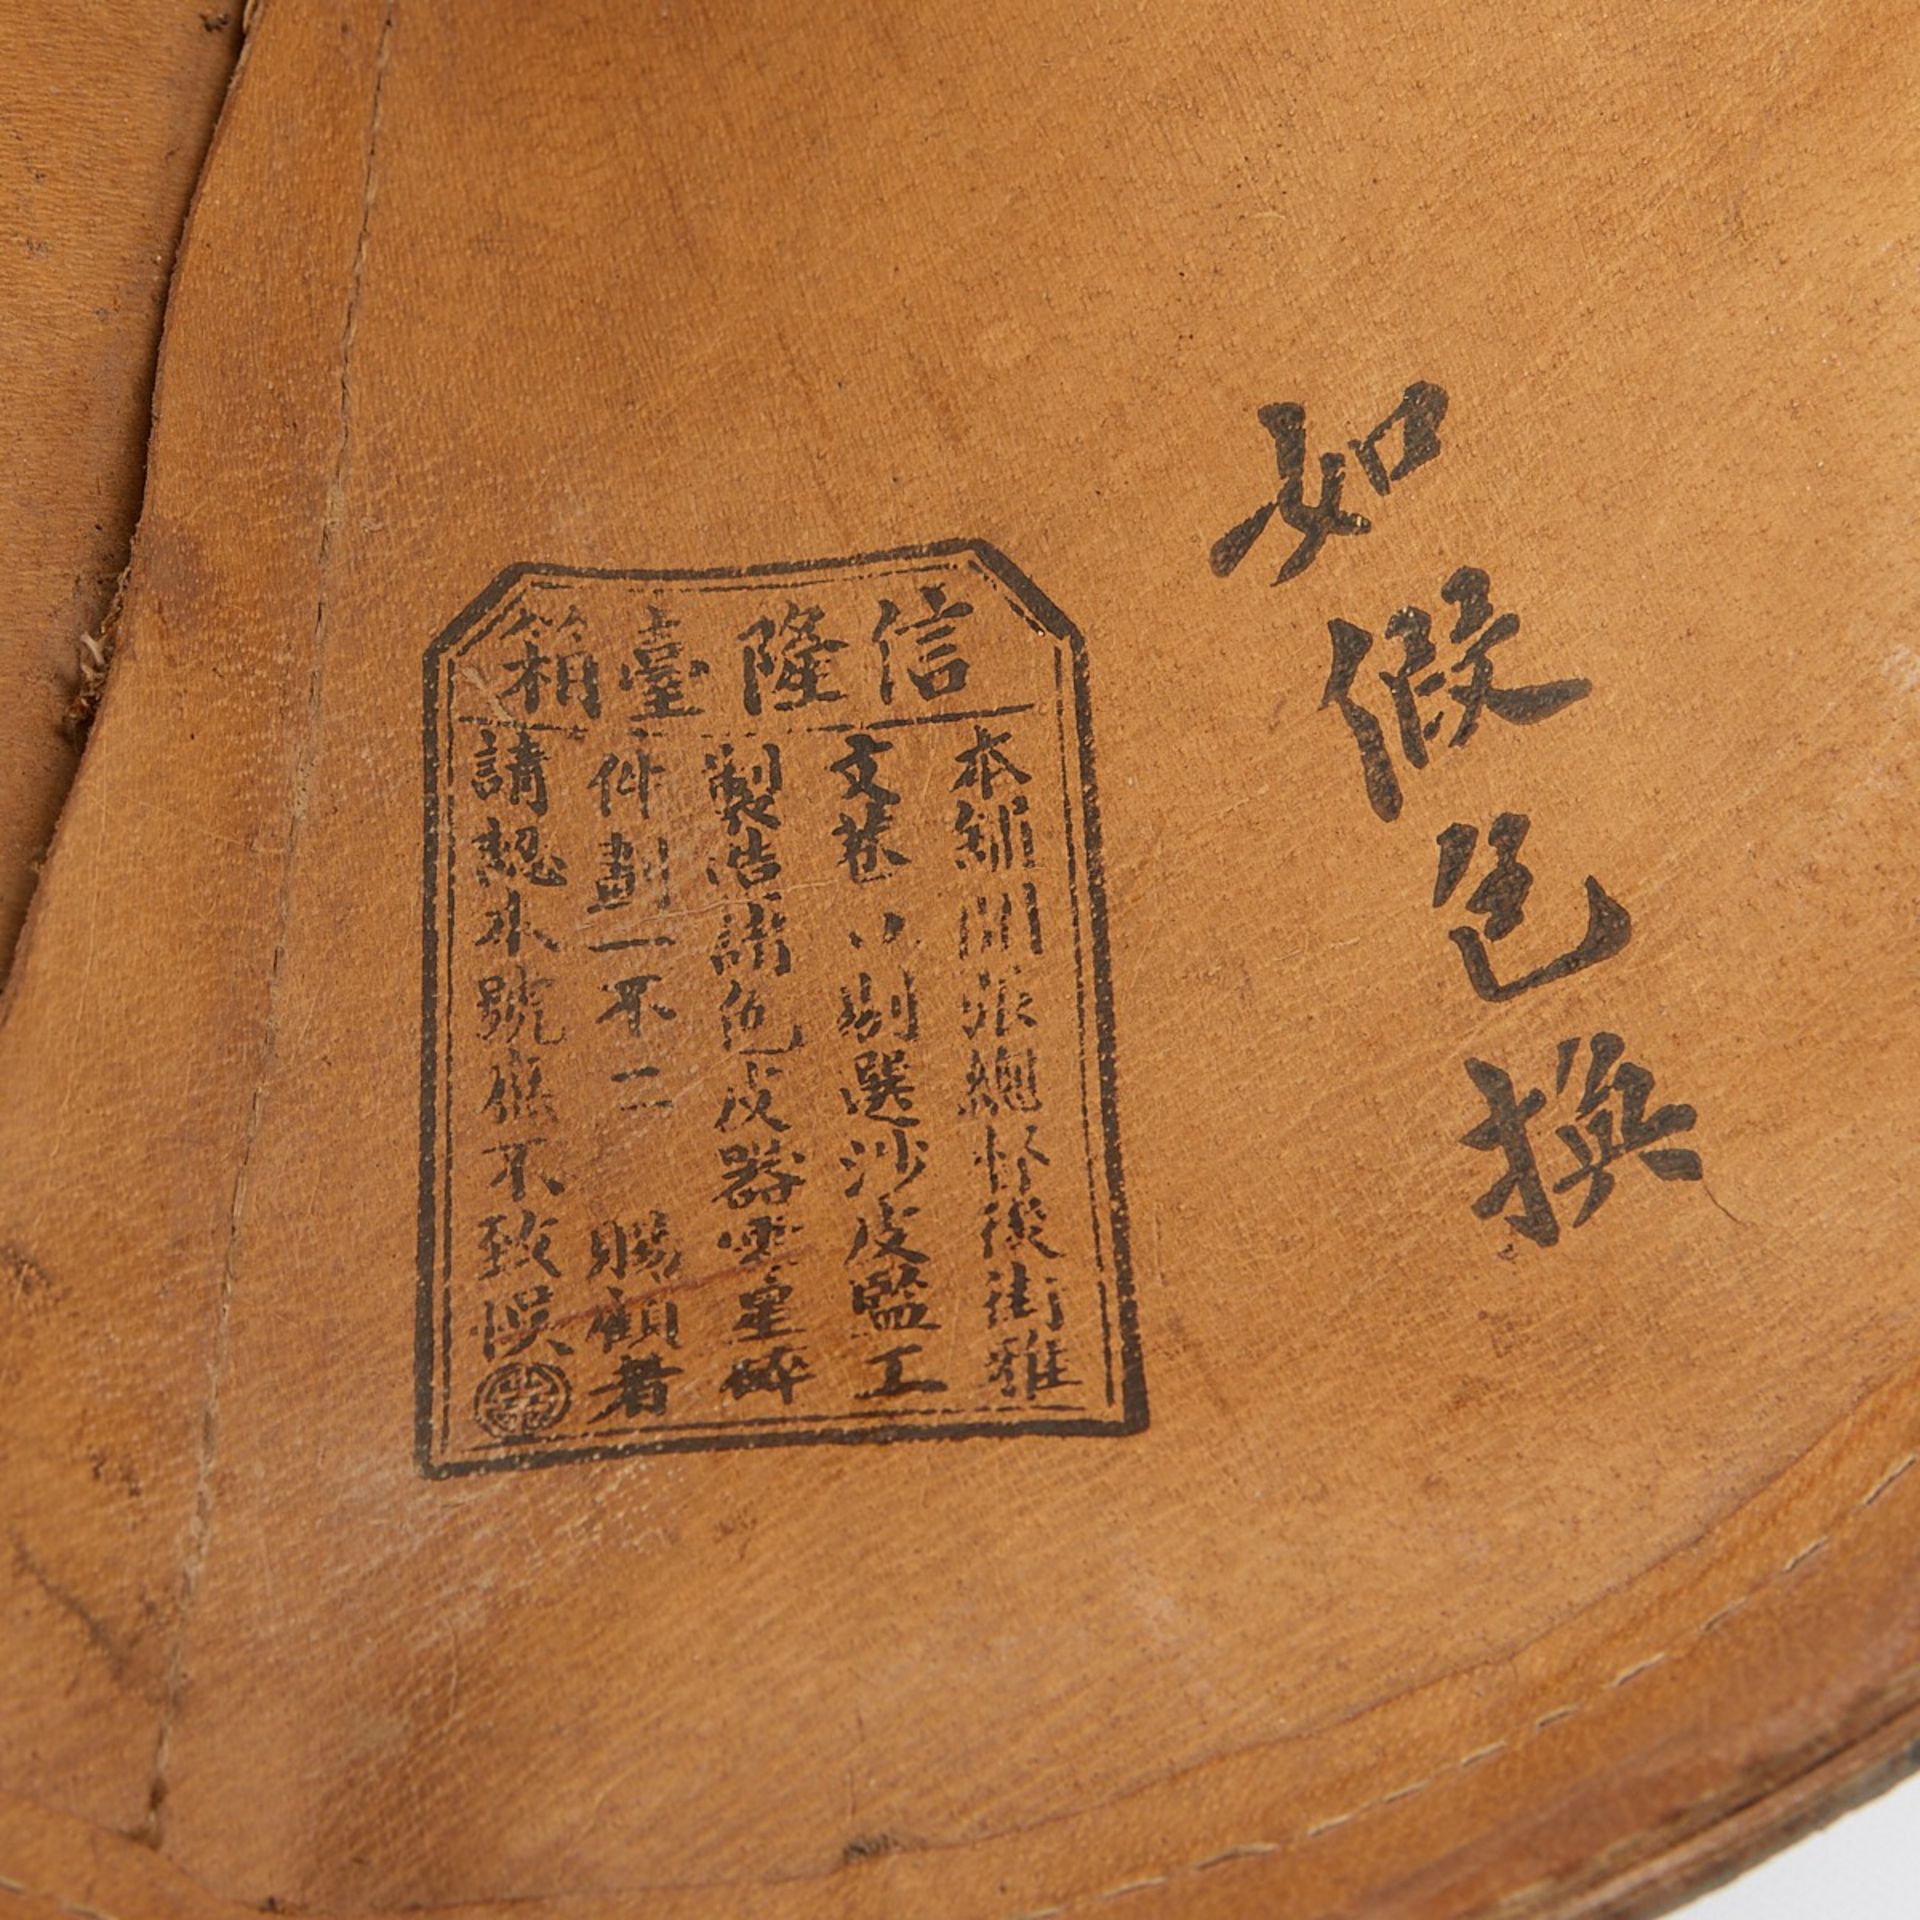 如假包換
信隆臺箱
本鋪開張總督後街雅
文巷口别選沙皮監工
製造諸色皮器零星碎
件劃一不二 賜顧者
請認本號庶不致悞